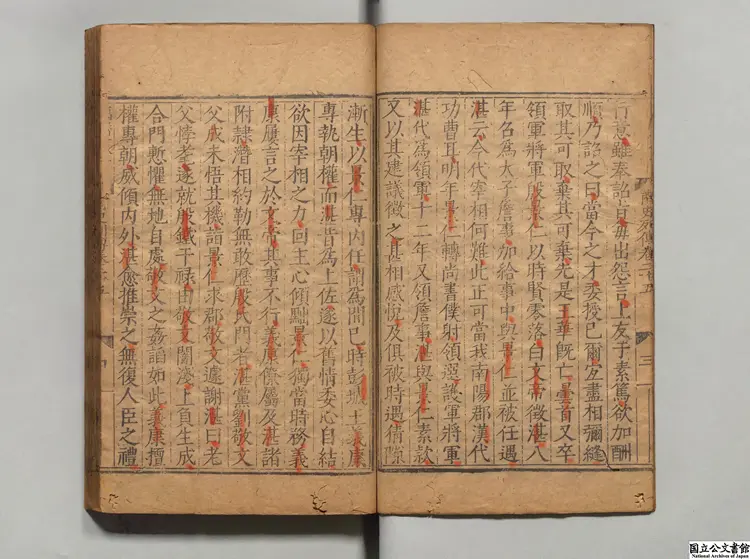 南史列傳卷二十五
三
行意雖奉詔旨每出怨言上友于素篤欲加酬
順乃詔之曰當今之才委授已爾宜盡相彌縫
取其可取棄其可棄先是王華既亡曇首又卒
領軍將軍殷景仁以時賢零落白文帝徵湛八
年召為太子詹事加給事中與景仁並被任遇
湛云今代宰相何難此正可當我南陽郡漢代
功曹耳明年景仁轉尚書僕射領選護軍將軍
湛代為領軍十二年又領詹事湛與景仁素款
又以其建議徵之甚相感悅及俱被時遇猜隙
漸生以景仁專內任謂為間已時彭城王義康
專執朝權而湛昔為上佐遂以舊情委心自結
欲因宰相之力回主心傾黜景仁獨當時務義
康屢言之於文帝其事不行義康僚屬及湛諸
附隸潛相約勒無敢歷殷氏門者湛黨劉敬文
父成未悟其機詣景仁求郡敬文遽謝湛曰老
父悖耄遂就殷鐵干祿由敬文闇淺上負生成
合門慙懼無地自處敬文之姦諂如此義康擅
權專朝威傾內外湛愈推崇之無復人臣之禮
国立公文書館
National Archives of Japan